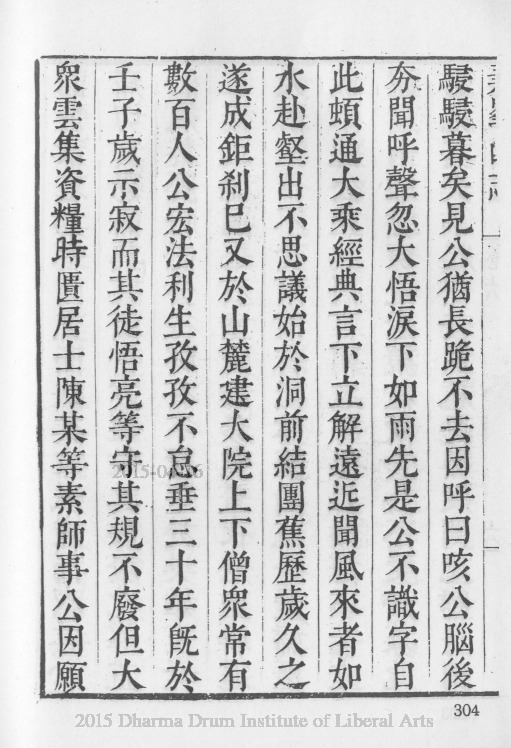 駸駸暮矣見公猶長跪不去因呼曰咳公腦後
夯聞呼聲忽大悟淚下如雨先是公不識字自
此頓通大乘經典言下立解遠近聞風來者如
水赴壑出不思議始於洞前結團蕉歷歲久之
遂成鉅剎已又於山麓建大院上下僧眾常有
數百人公宏法利生孜孜不怠垂三十年旣於
壬子歲示寂而其徒悟亮等守其規不廢但大
眾雲集資糧時匱居士陳某等素師事公因願
304
2015 Dharma Drum Institute of Liberal Arts